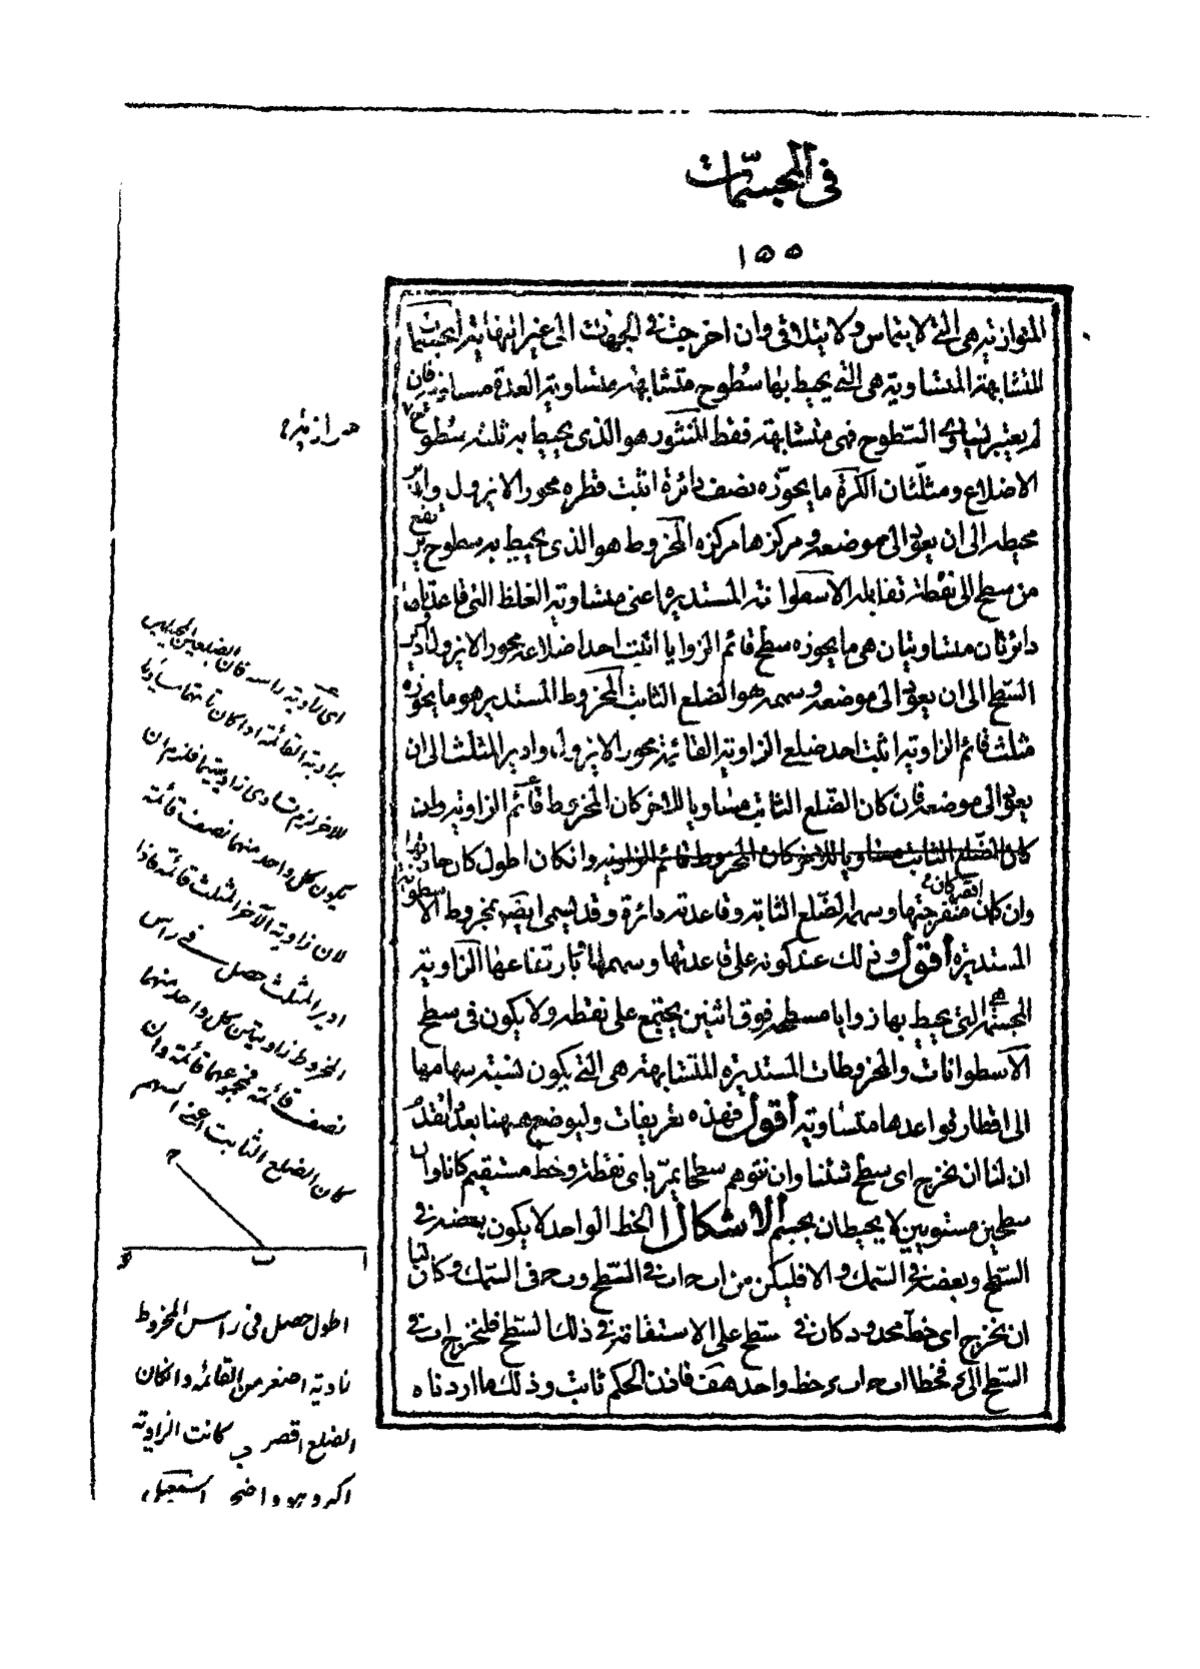 فى المجسّمات
١٥٥
المتوازية هى التى لا يتماس ولا يتلاقى وان اخرجت فى الجهات الى غير النهاية المجسمات
المتشابهة المتساوية هى التى يحيط بها سُطوح متشابهة متساوية العدة متساوية فان
لم يعتبر تساوى السّطوح فهى متشابهة فقط المنشور هو الذى يحيط به ثلثة سُطوح
متوازية
الاضلاع ومثلّثان الكرة ما يحوزه نصف دائرة اثبت قطره محورا لا يزول وادير
محيطه الى ان يعود الى موضعه ومركزها مركزه المخروط هو الذى يحيط به سطوح يرتفع
من سطح الى نقطة تقابله الاسطوانة المستديرة اعنى متساوية الغلظ التى قاعدتاها
دائرتان متساويتان هى ما يحوزه سطح قائم الزوايا اثبت احد اضلاعه محورا لا يزول وادير
السّطح الى ان يعود الى موضعه وسهمه هو الضلع الثابت المخروط المستدير هو ما يحوزه
مثلث قائم الزاوية اثبت احد ضلعى الزاوية القائمة محورا لا يزول وادير المثلث الى ان
يعود الى موضعه فان كان الضّلع الثابت مساويا للاخر كان المخروط قائم الزاوية وان
كان الضّلع الثابت مساويا للاخر كان المخروط قائم الزاوية وان كان اطول كان حادّتها
وان كان اقصر كان منفرجتها وسهمه الضّلع الثابت وقاعدته دائرة وقد يسمى ايضا بمخروط الاسطوانة
المستديرة أقول وذلك عند كونه على قاعدتها وسهمها بارتفاعها الزاوية
المجسّمة هى التى يحيط بها زوايا مسطحة فوق اثنين يجتمع على نقطة ولا يكون فى سطح
الاسطوانات والمخروطات المستديرة المتشابهة هى التى يكون نسبة سهامها
الى اقطار قواعدها متساوية أقول فهذه تعريفات وليوضع ههنا بعد ما تقدم
ان لنا ان نخرج اى سطح شئنا وان نتوهم سطحا يمرّ باى نقطة وخط مستقيم كانا وان
سطحين مستويين لا يحيطان بجسم الاشكال ا الخط الواحد لا يكون بعضه فى
السّطح وبعضه فى السّمك والا فليكن من ا ب ح ا ب فى السّطح و ب ح فى السّمك وكان لنا
ان نخرج اى خط محدود كان فى سطح على الاستقامة فى ذلك السّطح فلنخرج ا ب فى
السّطح الى ء فخطا ا ب ح ا ب ء خط واحد هف فاذن الحكم ثابت وذلك ما اردناه
اى زاوية راسه فان الضلعين المحيطين
بزاوية القائمة اذا كان احدهما مساويا
للاخر لزم تساوى زاويتيهما فلزم ان
يكون كل واحد منهما نصف قائمة
لان زاوية الآخر المثلث قائمة فاذا
ادير المثلث حصل فى راس
المخروط زاويتين كل واحد منهما
نصف قائمة فمجموعهما قائمة وان
كان الضلع الثابت اعنى السهم
ح
ا ب ء
اطول حصل فى راس المخروط
زاوية اصغر من القائمة وان كان
الضلع اقصر كانت الزاوية
اكبر وهو واضح اسمعيل